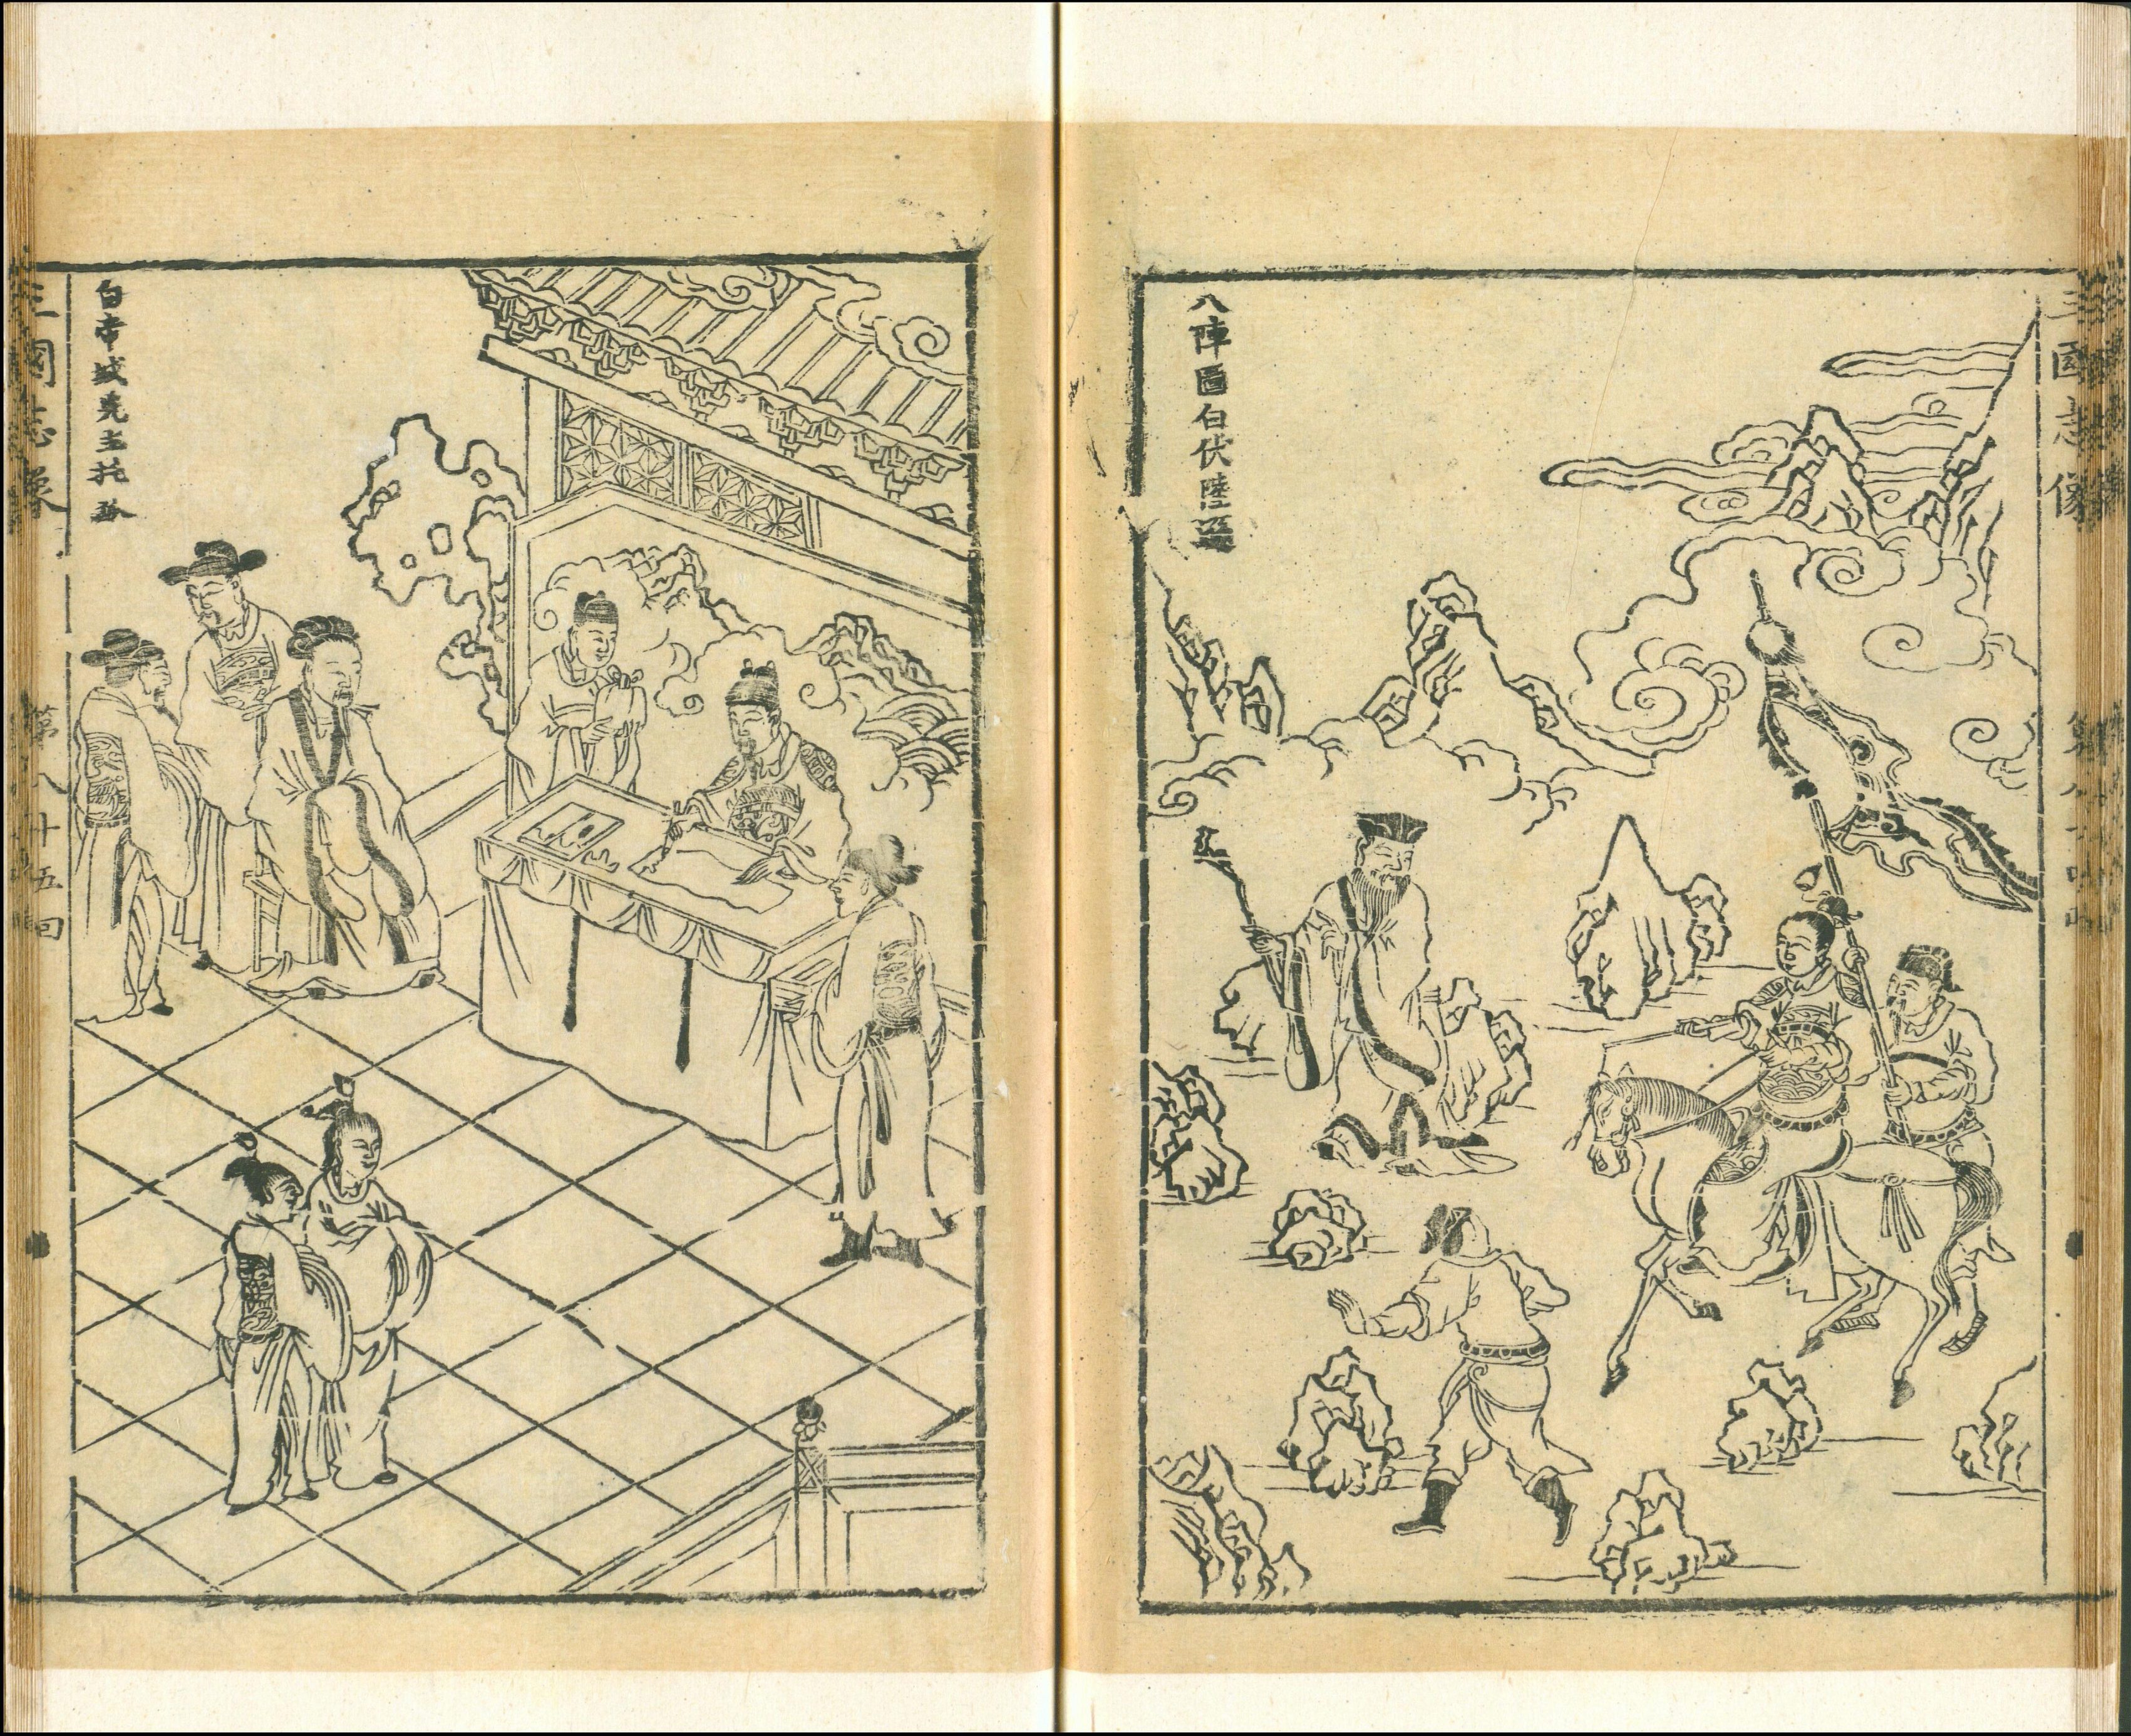 三國志像
第八十四回
八陣圖白伏陸遜
白帝城先主托孤
三國志像
第八十五回